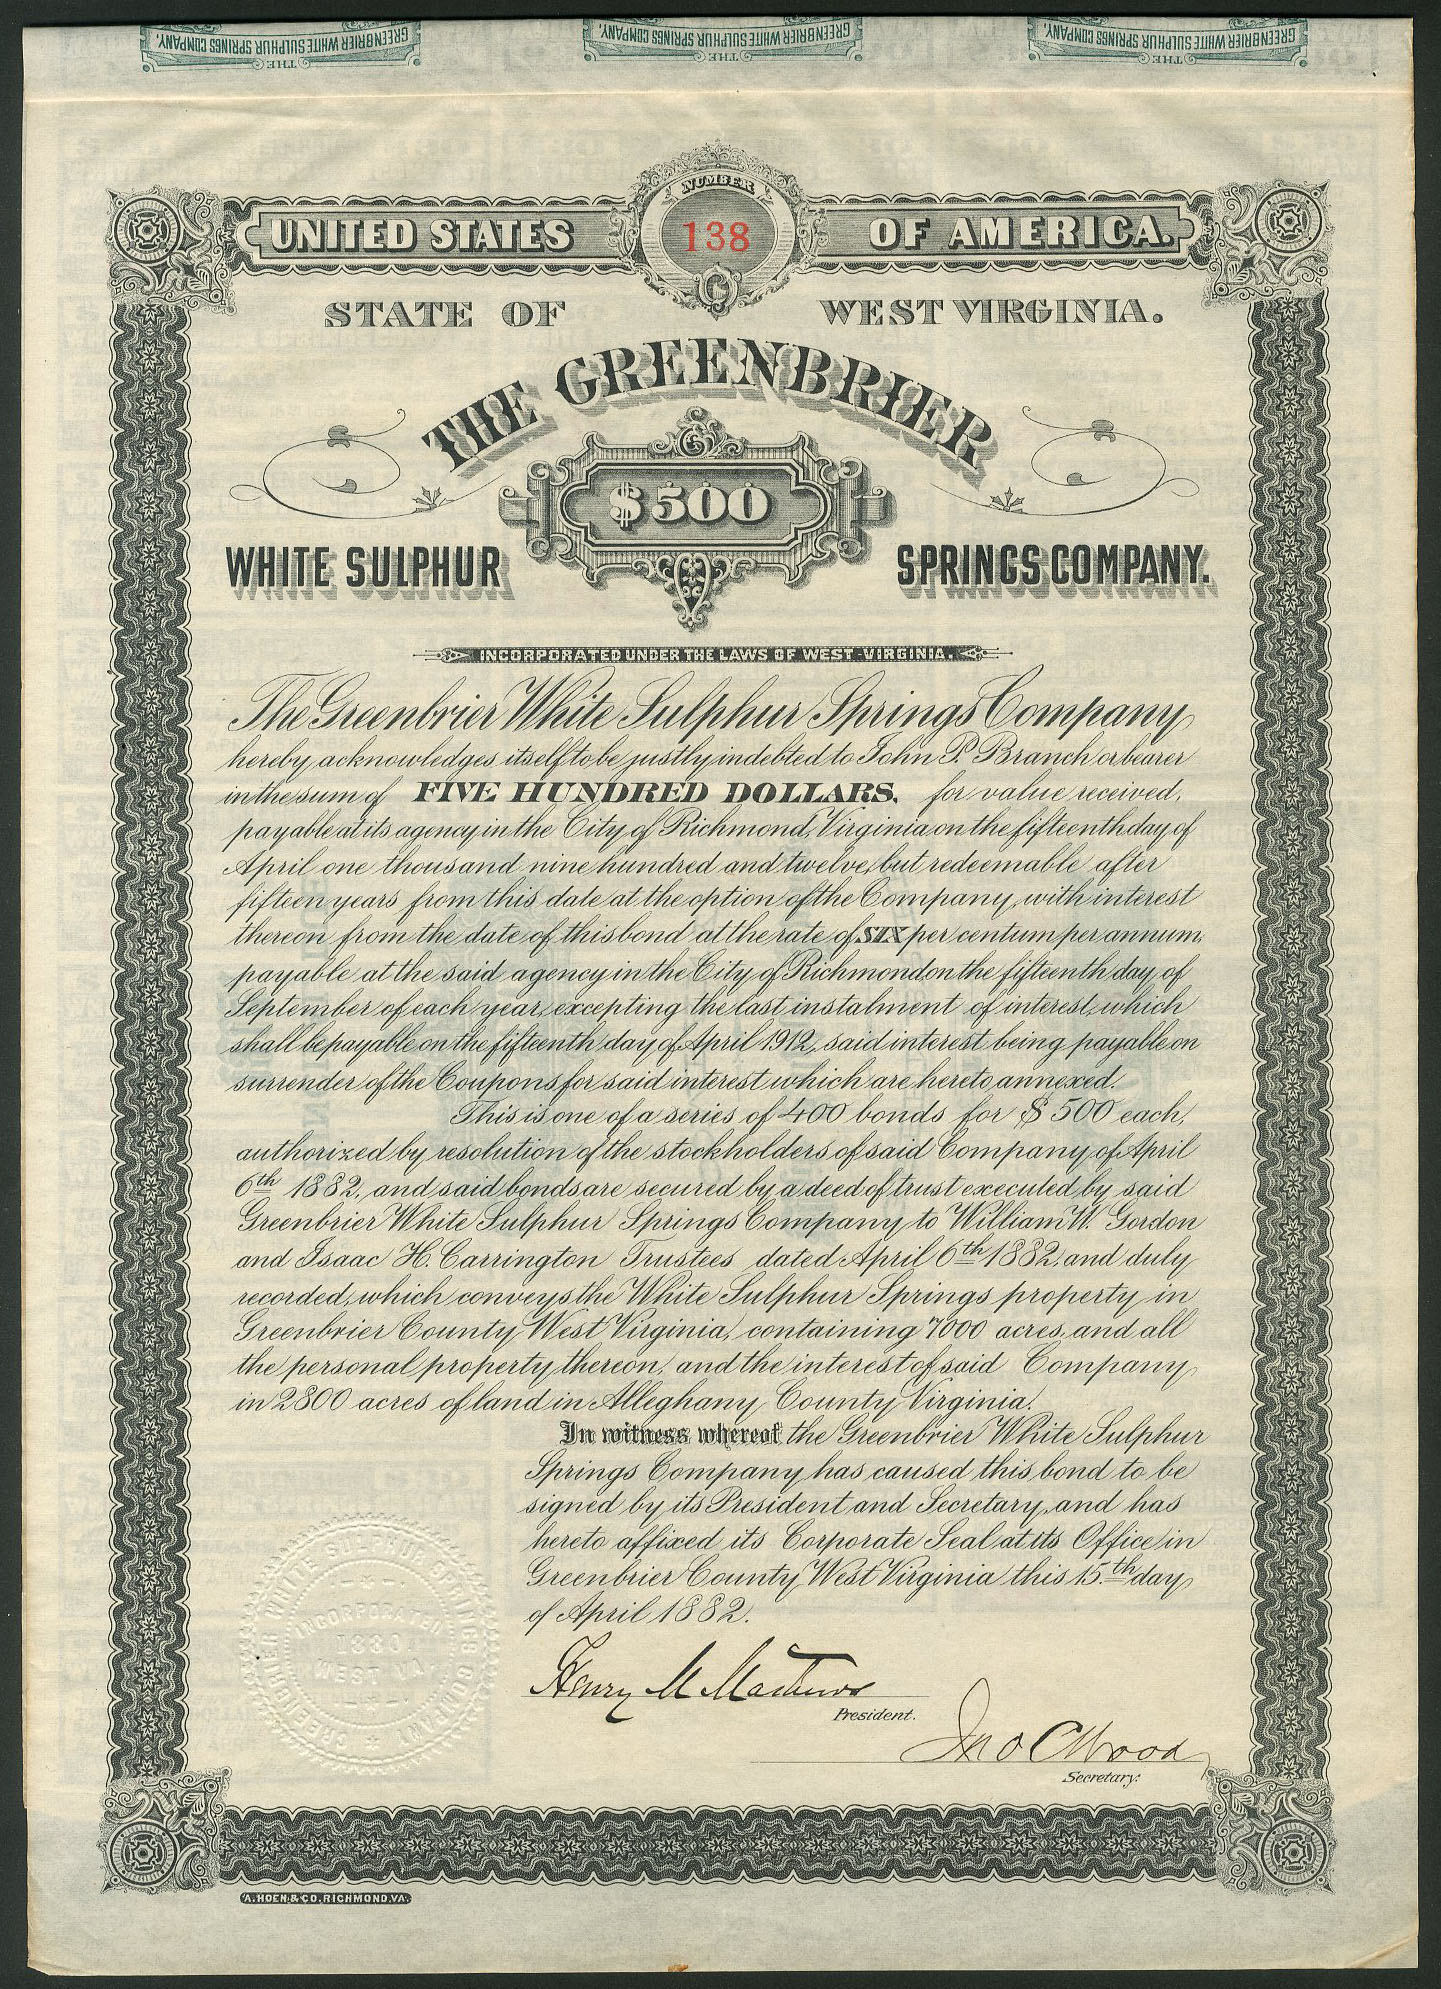 GREENBRIER WHITE SULPHUR SPRINGS COMPANY. GREENBRIER WHITE SULPHUR SPRINGS COMPANY. GREENBRIER WHITE SULPHUR SPRINGS COMPANY.
THE THE THE
NUMBER
UNITED STATES 138 OF AMERICA.
STATE OF WEST VIRGINIA.
THE GREENBRIER
$500
WHITE SULPHUR SPRINGS COMPANY.
INCORPORATED UNDER THE LAWS OF WEST VIRGINIA.
The Greenbrier White Sulphur Springs Company
hereby acknowledges itself to be justly indebted to John P. Branch or bearer
in the sum of FIVE HUNDRED DOLLARS, for value received,
payable at its agency in the City of Richmond, Virginia on the fifteenth day of
April one thousand nine hundred and twelve, but redeemable after
fifteen years from this date at the option of the Company, with interest
thereon from the date of this bond at the rate of SIX per centum per annum,
payable at the said agency in the City of Richmond on the fifteenth day of
September of each year, excepting the last instalment of interest, which
shall be payable on the fifteenth day of April 1912, said interest being payable on
surrender of the Coupons for said interest which are hereto annexed.
This is one of a series of 400 bonds for $500 each,
authorized by resolution of the stockholders of said Company of April
6th 1882, and said bonds are secured by a deed of trust executed by said
Greenbrier White Sulphur Springs Company to William W. Gordon
and Isaac H. Carrington Trustees dated April 6th 1882, and duly
recorded, which conveys the White Sulphur Springs property in
Greenbrier County West Virginia, containing 7000 acres, and all
the personal property thereon, and the interest of said Company
in 2800 acres of land in Alleghany County Virginia.
In witness whereof the Greenbrier White Sulphur
Springs Company has caused this bond to be
signed by its President and Secretary, and has
hereto affixed its Corporate Seal at its Office in
Greenbrier County West Virginia this 15.th day
of April 1882.
GREENBRIER WHITE SULPHUR SPRINGS COMPANY
INCORPORATED
1880
WEST VA
Henry M Mathews
President.
Jno C Wood
Secretary.
A. HOEN & CO, RICHMOND, VA.